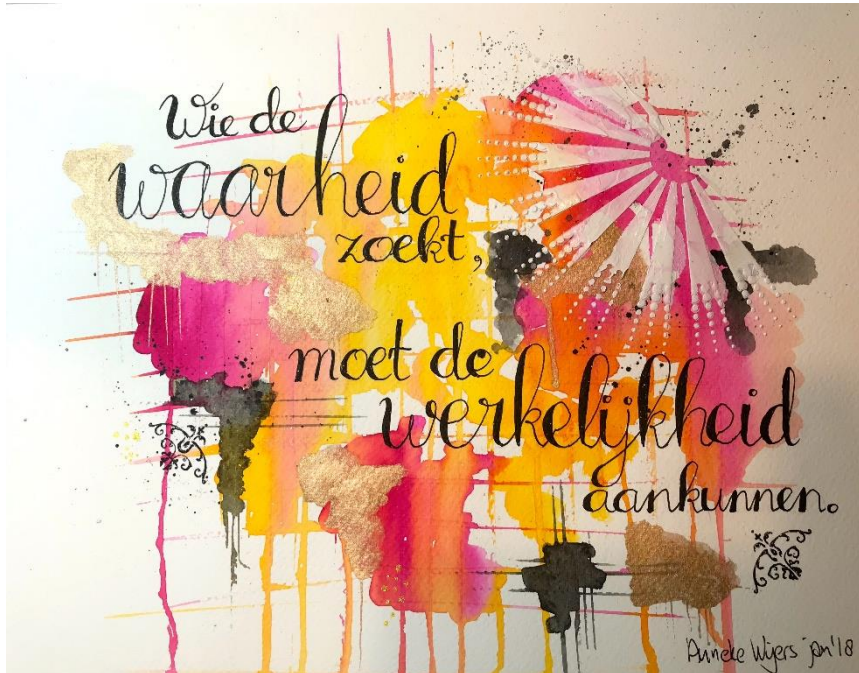 Wie de
waarheid
zoekt,
moet de
werkelijkheid
aankunnen.
Anneke Wijers jan '18